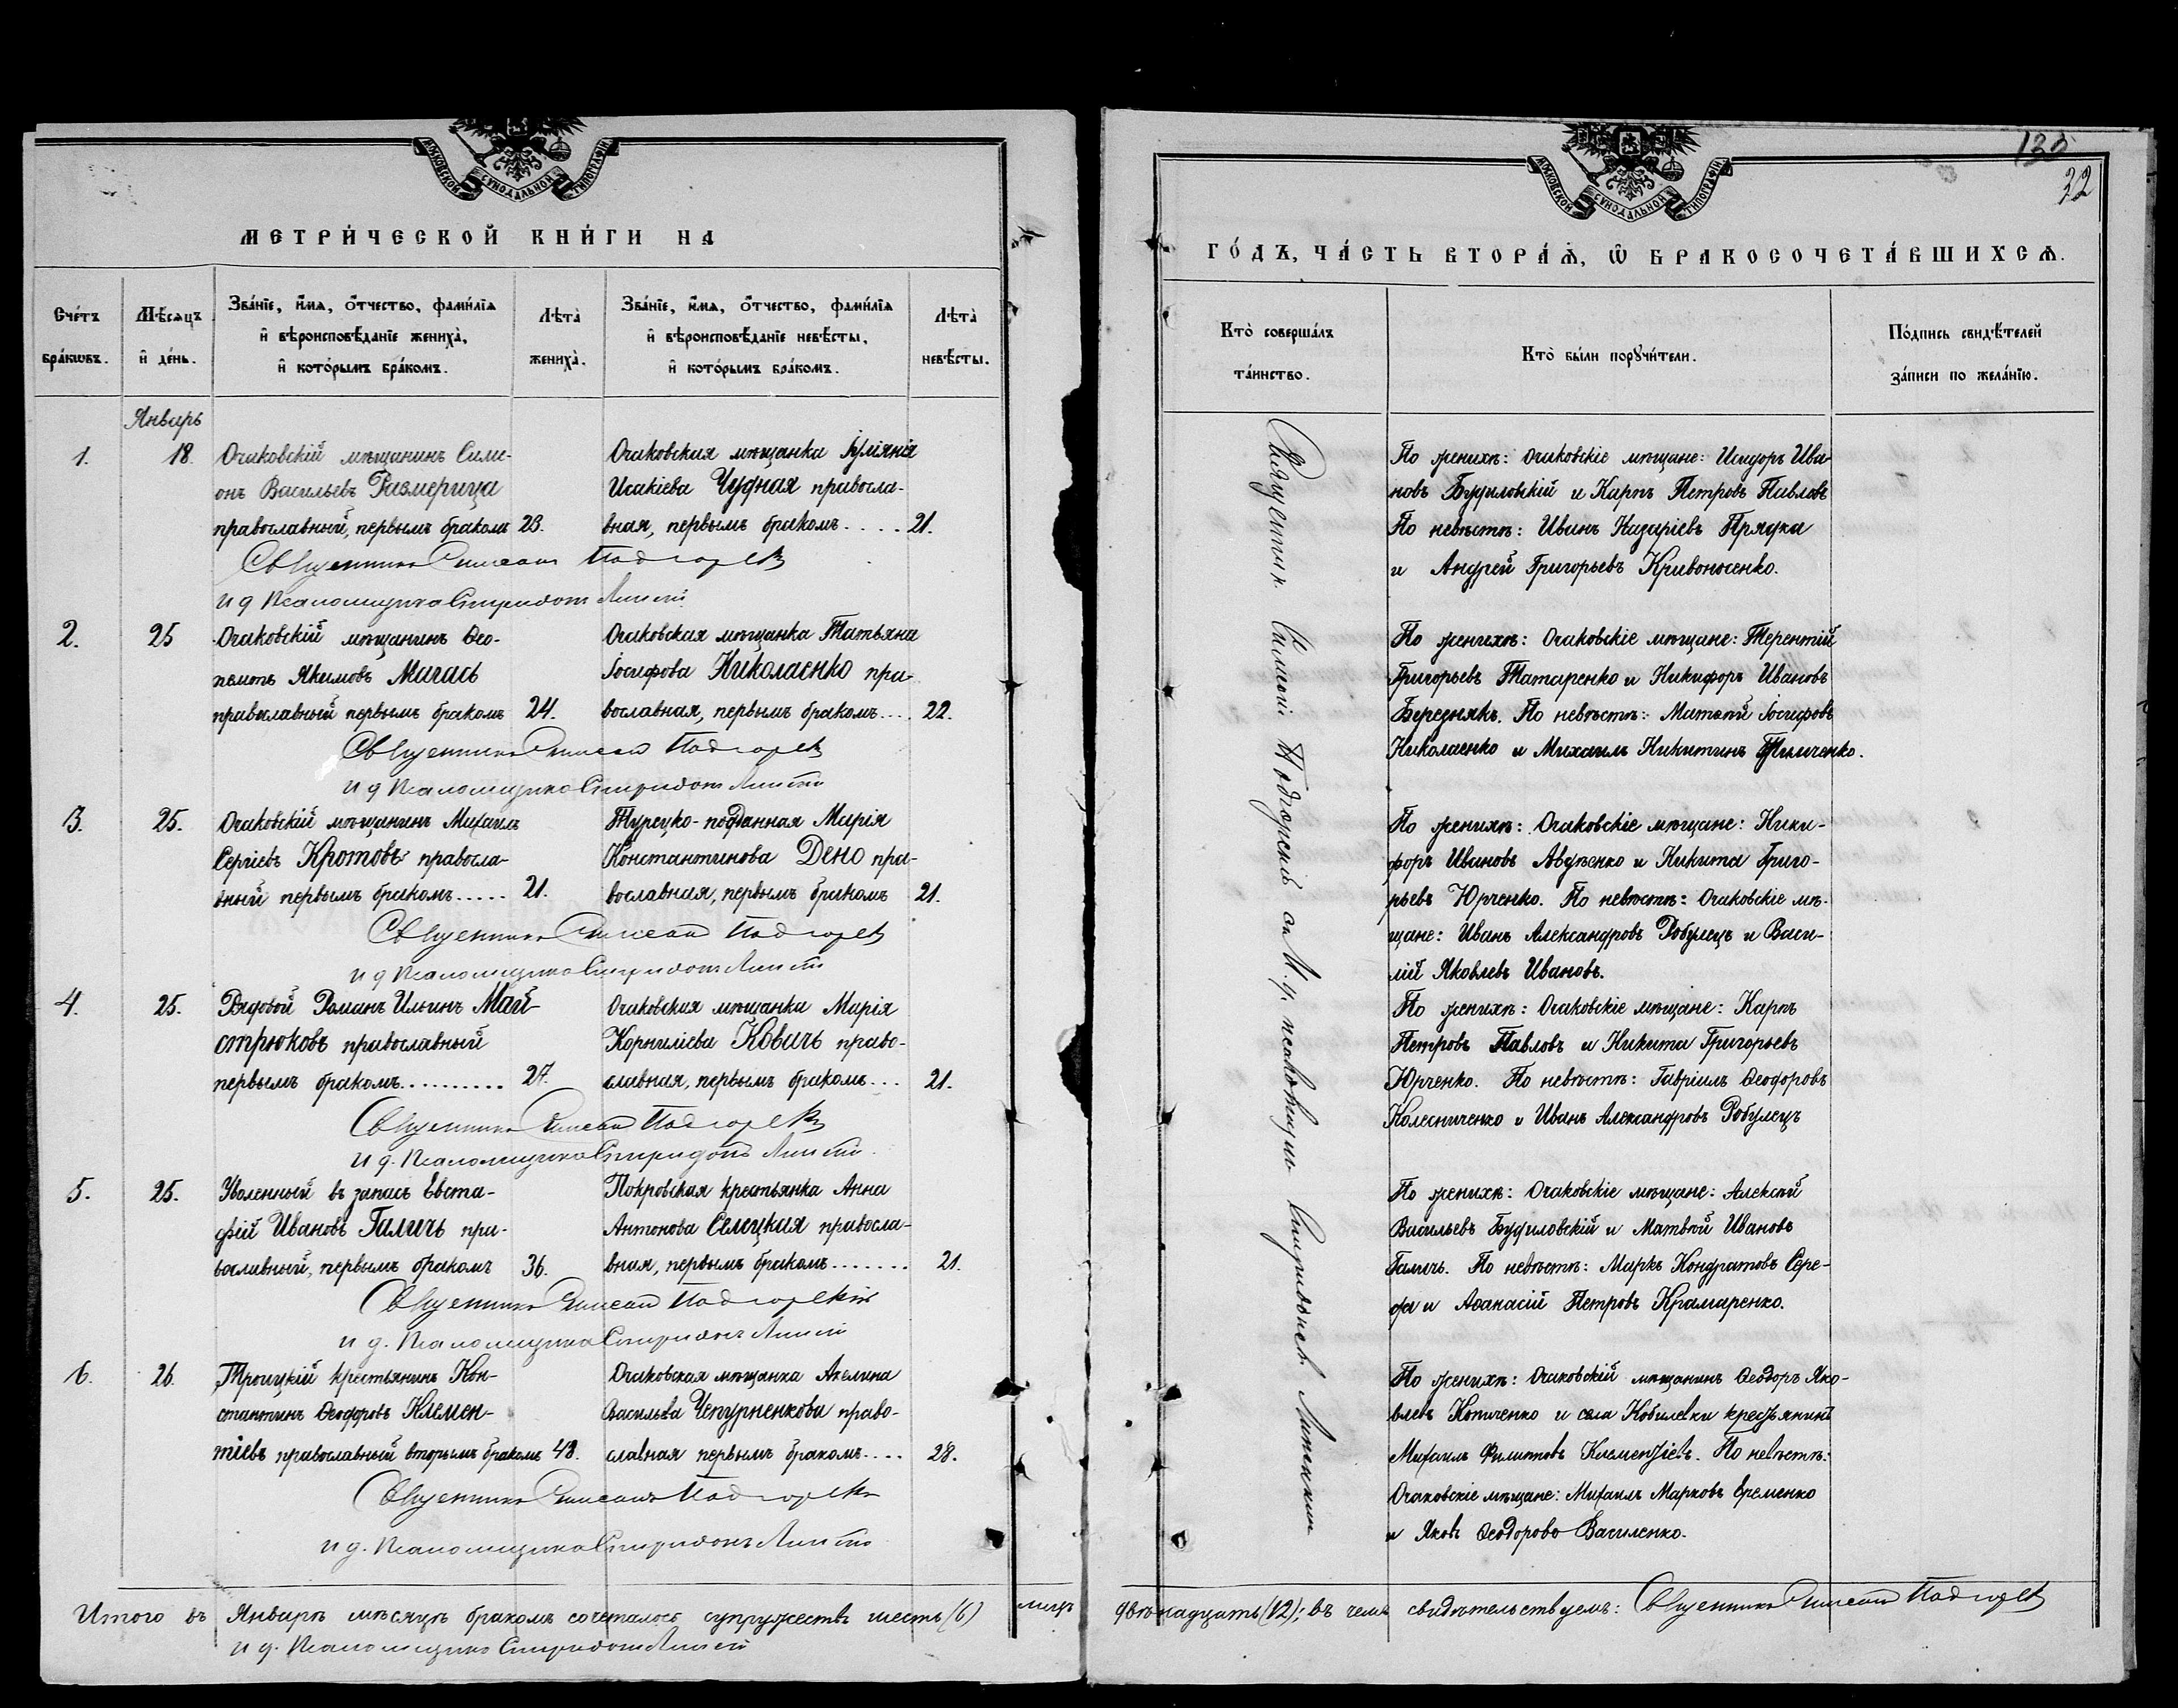 МОСКОВСКОЙ СѴНОДАЛЬНОЙ ТИПОГРАФІИ
МЕТРИ́ЧЕСКОЙ КНИ́ГИ НА
Сче́тъ бра́кѡвъ.
Мѣ́сѧцъ и҆ де́нь.
Зва́нїе, и҆́мѧ, ѻ҆́тчество, фами́лїѧ
и҆ вѣроисповѣ́данїе жениха̀,
и҆ кото́рымъ бра́комъ.
Лѣта̀ жениха̀.
Зва́нїе, и҆́мѧ, ѻ҆́тчество, фами́лїѧ
и҆ вѣроисповѣ́данїе невѣ́сты,
и҆ кото́рымъ бра́комъ.
Лѣта̀ невѣ́сты.
Январь
1. 18. Очаковскій мѣщанинъ Симе-
онъ Васильевъ Размерица
православный, первымъ бракомъ 23.
Очаковская мѣщанка Іуліянія
Исакіева Чудная правосла-
вная, первымъ бракомъ..... 21.
Священникъ Симеонъ Подгорскій
и д псаломщика Спиридонъ
2. 25 Очаковскій мѣщанинъ Ѳео-
пемптъ Якимовъ Магась
православный первымъ бракомъ 24.
Очаковская мѣщанка Татьяна
Іосифова Николаенко пра-
вославная, первымъ бракомъ.... 22.
Священникъ Симеонъ Подгорскій
и д псаломщика Спиридонъ
3. 25. Очаковскій мѣщанинъ Михаилъ
Сергіевъ Кротовъ правосла-
вный первымъ бракомъ..... 21.
Турецко-подданная Марія
Константинова Дено пра-
вославная, первымъ бракомъ 21.
Священникъ Симеонъ Подгорскій
и д псаломщика Спиридонъ
4. 25. Рядовой Романъ Ильинъ Май-
стрюковъ православный
первымъ бракомъ.......... 27.
Очаковская мѣщанка Марія
Корниліева Ковачь право-
славная, первымъ бракомъ... 21.
Священникъ Симеонъ Подгорскій
и д. псаломщика Спиридонъ
5. 25. Уволенный въ запасъ Евста-
фій Ивановъ Галичь пра-
вославный, первымъ бракомъ 36.
Покровская крестьянка Анна
Антонова Селецкая правосла-
вная, первымъ бракомъ....... 21.
Священникъ Симеонъ Подгорскій
и д. псаломщика Спиридонъ
6. 26. Троицкій крестьянинъ Кон-
стантинъ Ѳеодоровъ Клемен-
тіевъ православный вторымъ бракомъ 43.
Очаковская мѣщанка Акелина
Васильева Чепурненкова право-
славная первымъ бракомъ.... 28.
Священникъ Симеонъ Подгорскій
и д. псаломщика Спиридонъ
Итого въ Январѣ мѣсяцѣ бракомъ сочеталось супружествъ шесть (6) лицъ
и д. псаломщика Спиридонъ
32
МОСКОВСКОЙ СѴНОДАЛЬНОЙ ТИПОГРАФІИ
ГО́ДЪ, ЧА́СТЬ ВТОРА́Ѧ, Ѡ҆ БРАКОСОЧЕТА́ВШИХСѦ.
Кто̀ соверша́лъ та́инство.
Кто̀ бы́ли порꙋчи́тели.
По́дпись свидѣ́телей за́писи по жела́нїю.
Священникъ Симеонъ Подгорскій съ и. д. псаломщика Спиридономъ
По женихѣ: Очаковскіе мѣщане: Исидоръ Ива-
новъ Будиловскій и Карпъ Петровъ Павловъ
По невѣстѣ: Иванъ Назаріевъ Прядка
и Андрей Григорьевъ Кривоносенко.
По женихѣ: Очаковскіе мѣщане: Терентій
Григорьевъ Татаренко и Никифоръ Ивановъ
Бережнякъ. По невѣстѣ: Матвѣй Іосифовъ
Николаенко и Михаилъ Никитинъ Тимченко.
По женихѣ: Очаковскіе мѣщане: Ники-
форъ Ивановъ Авдѣенко и Никита Григо-
рьевъ Юрченко. По невѣстѣ: Очаковскіе мѣ-
щане: Иванъ Александровъ Робулецъ и Васи-
лій Яковлевъ Ивановъ.
По женихѣ: Очаковскіе мѣщане: Карпъ
Петровъ Павловъ и Никита Григорьевъ
Юрченко. По невѣстѣ: Гавріилъ Ѳеодоровъ
Колесниченко и Иванъ Александровъ Робулецъ
По женихѣ: Очаковскіе мѣщане: Алексѣй
Васильевъ Будиловскій и Матвѣй Ивановъ
Галичь. По невѣстѣ: Маркъ Кондратовъ Сере-
да и Аѳанасій Петровъ Крамаренко.
По женихѣ: Очаковскій мѣщанинъ Ѳеодоръ Яко-
влевъ Копиченко и села Кобилевки крестьянинъ
Михаилъ Филипповъ Клементіевъ. По невѣстѣ:
Очаковскіе мѣщане: Михаилъ Марковъ Еременко
и Яковъ Ѳеодоровъ Василенко.
двѣнадцать (12); въ чемъ свидѣтельствуемъ: Священникъ Симеонъ Подгорскій